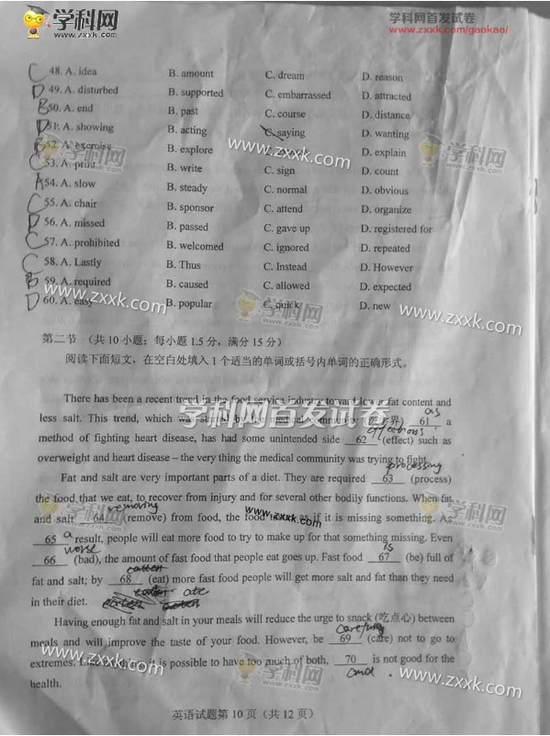 学科网
www.zxxk.com
学科网首发试卷
www.zxxk.com/gaokao/
C 48. A. idea B. amount C. dream D. reason
D 49. A. disturbed B. supported C. embarrassed D. attracted
B 50. A. end B. past C. course D. distance
D 51. A. showing B. acting C. saying D. wanting
B 52. A. exercise B. explore D. explain
C 53. A. print B. write C. sign D. count
A 54. A. slow B. steady C. normal D. obvious
C 55. A. chair B. sponsor C. attend D. organize
D 56. A. missed B. passed C. gave up D. registered for
C 57. A. prohibited B. welcomed C. ignored D. repeated
C 58. A. Lastly B. Thus C. Instead D. However
B 59. A. required B. caused C. allowed D. expected
D 60. A. easy B. popular C. quick D. new
学科网
www.zxxk.com
学科网
www.zxxk.com
学科网
第二节 (共 10 小题; 每小题 1.5 分, 满分 15 分)
阅读下面短文, 在空白处填入 1 个适当的单词或括号内单词的正确形式。
There has been a recent trend in the food service industry toward lower fat content and
less salt. This trend, which was 界) 61 as a
学科网首发试卷
method of fighting heart disease, has had some unintended side 62 (effect) such as
overweight and heart disease – the very thing the medical community was trying to fight.
processing
Fat and salt are very important parts of a diet. They are required 63 (process)
the food that we eat, to recover from injury and for several other bodily functions. When fat
removing
and salt 64 (remove) from food, the food as if it is missing something. As
www.zxxk.com
65 a result, people will eat more food to try to make up for that something missing. Even
worse is
66 (bad), the amount of fast food that people eat goes up. Fast food 67 (be) full of
fat and salt; by 68 (eat) more fast food people will get more salt and fat than they need
in their diet.
ate
Having enough fat and salt in your meals will reduce the urge to snack (吃点心) between
careful
meals and will improve the taste of your food. However, be 69 (care) not to go to
extremes. it is possible to have too much of both, 70 is not good for the
and
health.
学科网
www.zxxk.com
www.zxxk.com
英语试题第 10 页 (共 12 页)